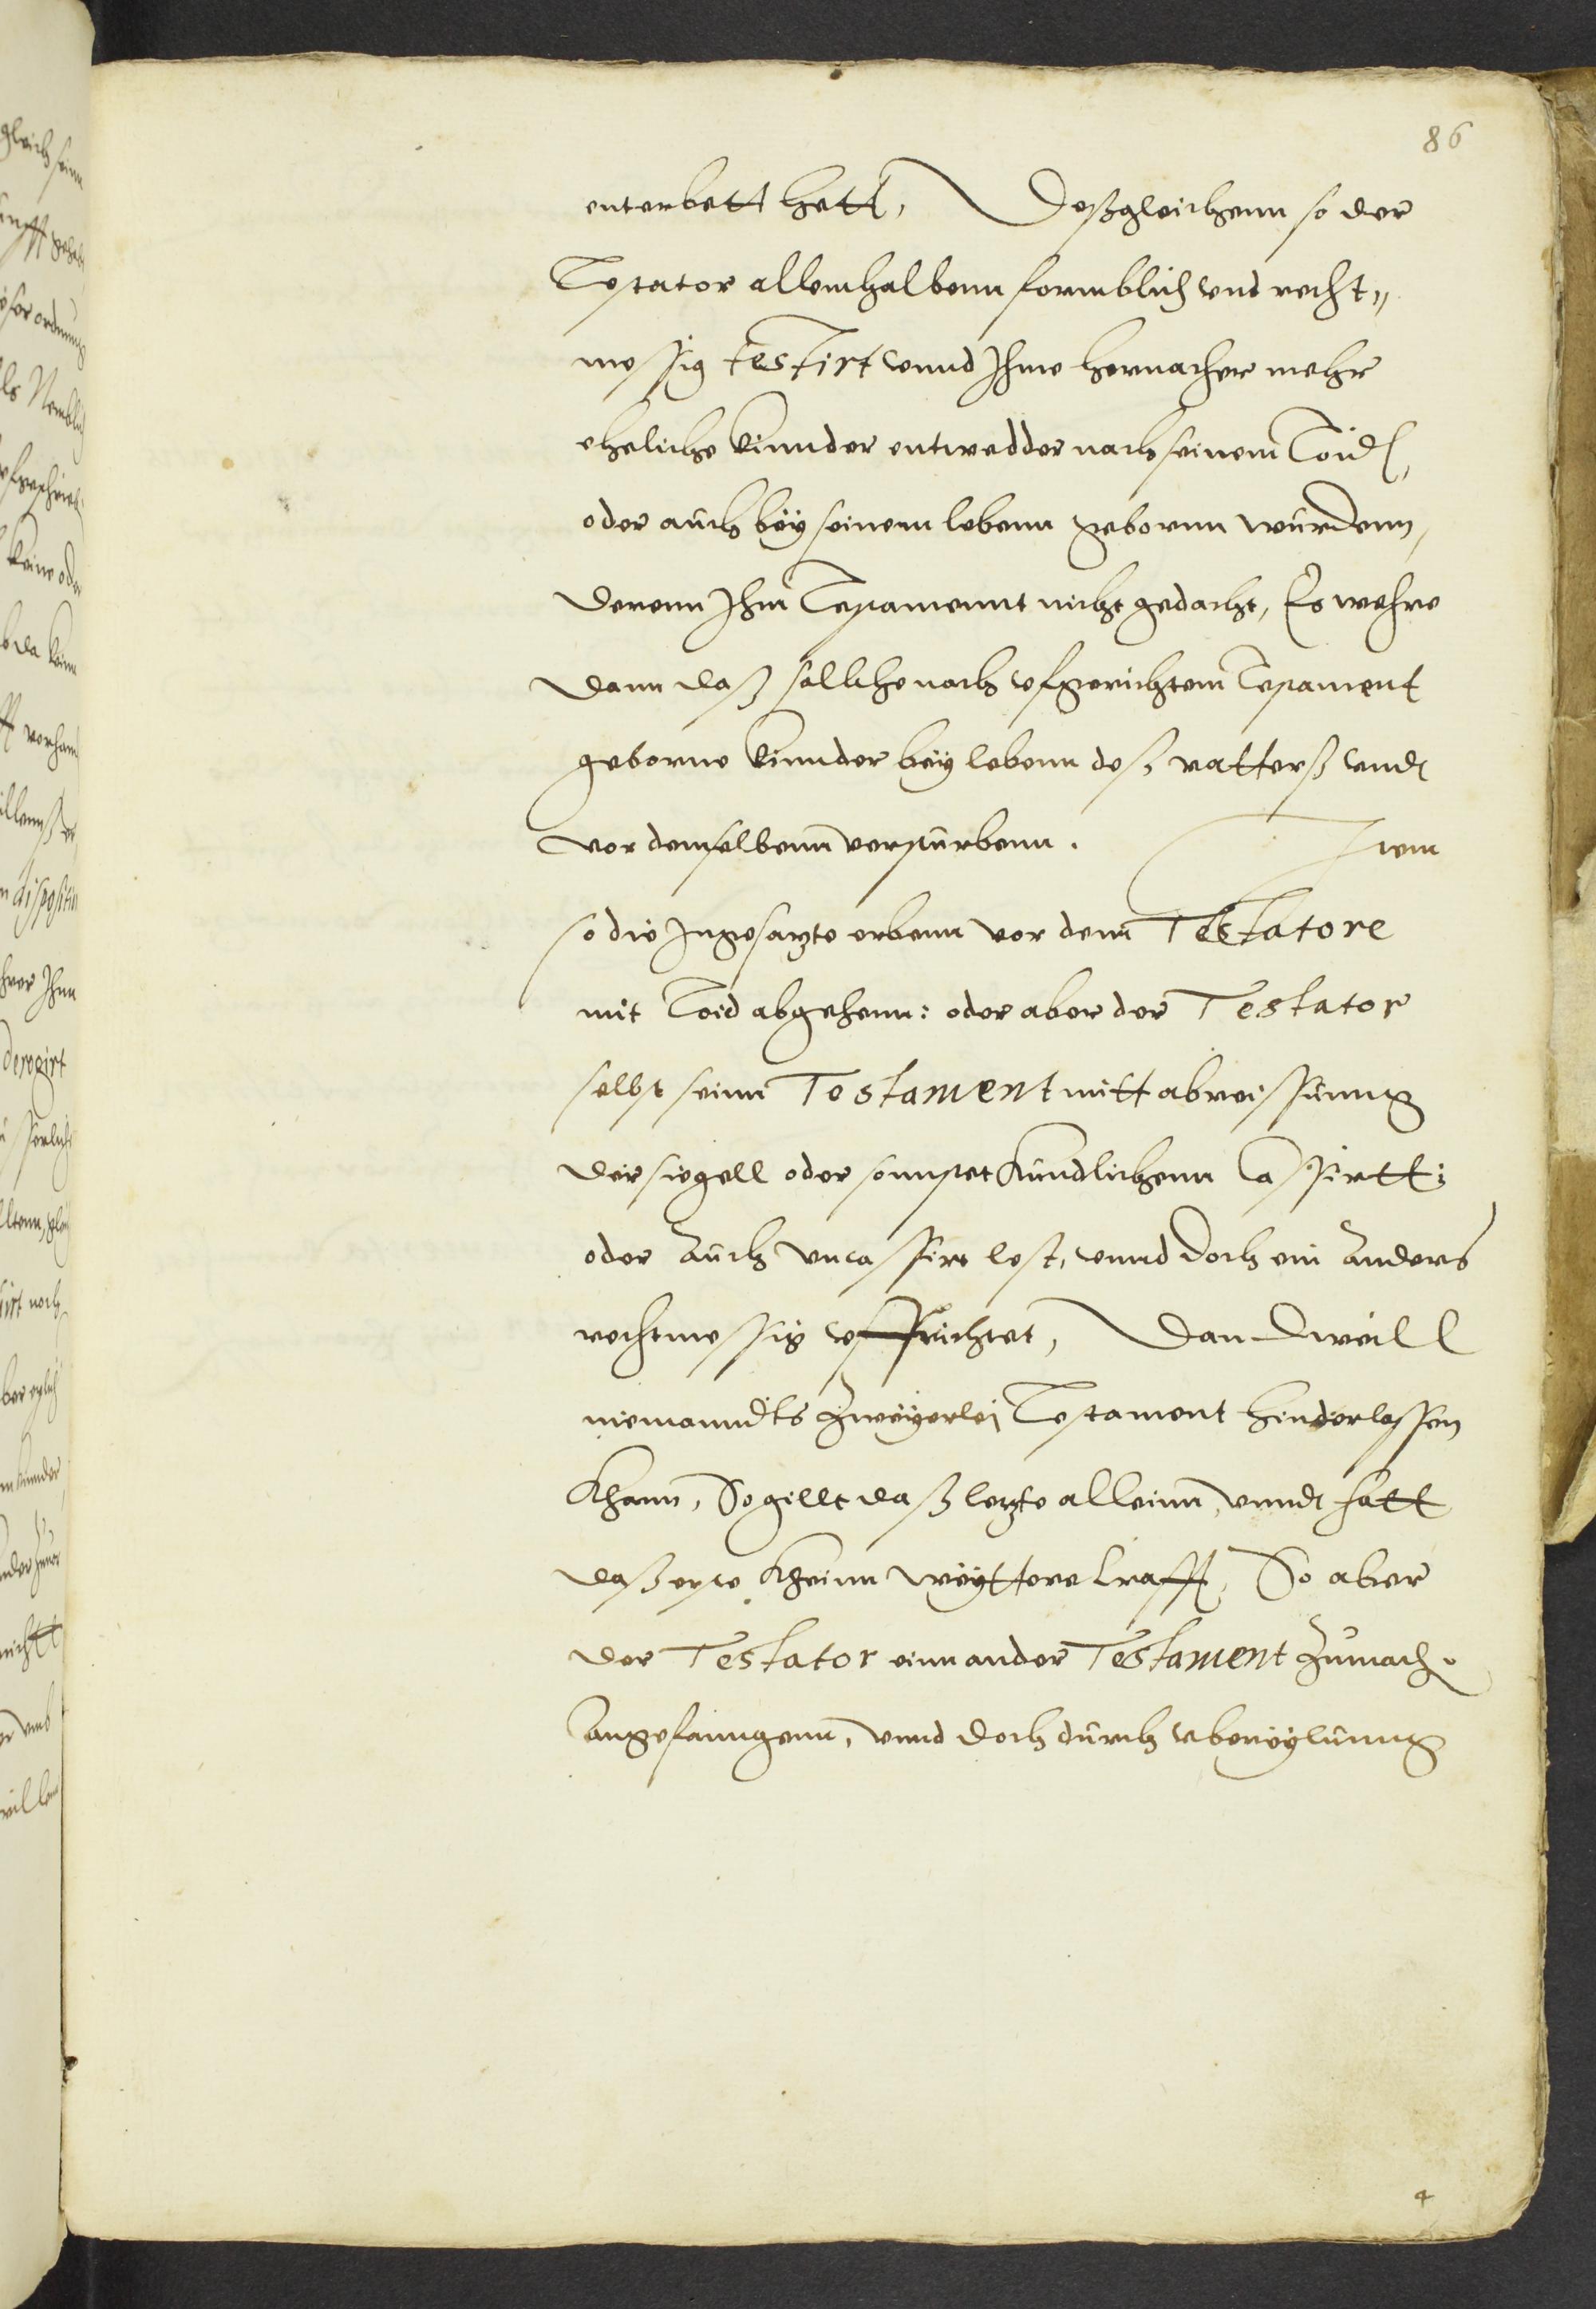 86
enterbett hett, Deßgleichenn so der
Testator allemhalbenn formblich vnd recht„
messig testirt vnnd Ihme hernacher mehr
eheliche kinnder entwedder nach seinem Toidt,
oder auch beÿ seinem lebenn gebornn wurdenn,
derenn Ihm Testamennt nicht gedacht, Es wehre
dann daß solliche nach vfgerichtem Testament
geborne kinnder beÿ lebenn deß vatterß vnndt
vor demselbenn verstürbenn. Item
so die Ingesatzte erbenn vor dem Testatore
mit Toid abgehenn: oder aber der Testator
selbst seinn Testament mitt abreissunng
der siegell oder sonnstet kundlichenn Cassirtt;
oder auch vncassirt lest, vnnd doch ein anders
rechtmessig vffrichtet, Dan dweill
niemanndts zweÿerlei Testament hinderlassen
khann, So gillt daß letzte alleinn, vnndt hatt
daß erste kheinn weÿttere krafft, So aber
der Testator einn ander Testament zumach.
angefanngenn, vnnd doch durch vbereÿlunng